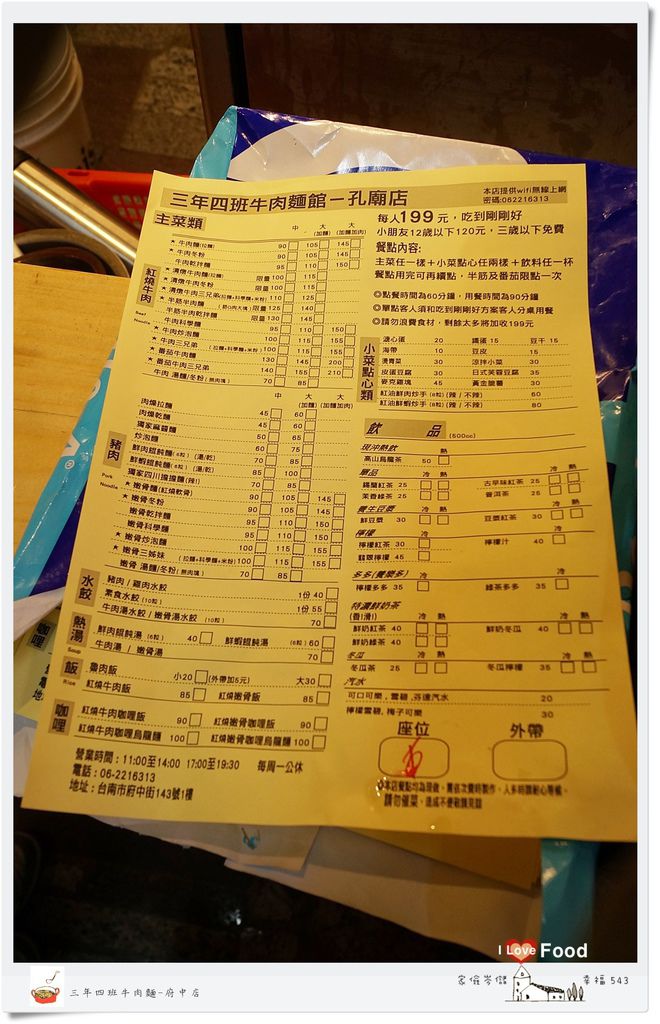 三年四班牛肉麵館－孔廟店
本店提供wifi無線上網
密碼:062216313
主菜類
中 大(加麵) 大(加麵加肉)
紅燒牛肉
Beef Noodle
★ 牛肉麵(拉麵) 90 105 145
★ 牛肉冬粉 90 105 145
牛肉乾拌麵 95 110 150
★ 清燉牛肉麵(拉麵) 限量 100 115
★ 清燉牛肉冬粉 限量 100 115
半筋半肉乾拌麵 限量 130 145
牛肉科學麵 95 110 150
牛肉炒泡麵
★ 牛肉三兄弟 (拉麵+科學麵+米粉)
★ 番茄牛肉麵
★ 番茄牛肉三兄弟
牛肉 湯麵/冬粉(無肉塊) 70 85
每人199元，吃到剛剛好
小朋友12歲以下120元，三歲以下免費
餐點內容:
主菜任一樣＋小菜點心任兩樣＋飲料任一杯
餐點用完可再續點，半筋及番茄限點一次
◎點餐時間為60分鐘，用餐時間為90分鐘
◎單點客人須和吃到剛剛好方案客人分桌用餐
◎請勿浪費食材，剩餘太多將加收199元
小菜點心類
溏心蛋 20 滷蛋 15 豆干 15
海帶 10 豆皮 15
燙青菜 30 涼拌小菜 30
皮蛋豆腐 30 日式芙蓉豆腐 35
麥克雞塊 45 黃金脆薯 30
紅油鮮肉炒手(8粒)(辣 / 不辣) 60
紅油鮮蝦炒手(8粒)(辣 / 不辣) 80
中 大(加麵) 大(加麵加肉)
豬肉
Pork Noodle
肉燥拉麵
肉燥乾麵 45 60
獨家麻醬麵 45 60
炒泡麵 50 65
鮮肉餛飩麵(6粒) (湯/乾) 60 75
鮮蝦餛飩麵(6粒) (湯/乾)
獨家四川擔擔麵(辣!)
★ 嫩骨麵(紅燒軟骨)
★ 嫩骨冬粉 90 105 145
嫩骨乾拌麵
嫩骨科學麵 95 110 150
★ 嫩骨炒泡麵
★ 嫩骨三姊妹 (拉麵+科學麵+米粉) 100 115 155
嫩骨 湯麵/冬粉(無肉塊) 70 85
飲 品 (500cc)
現沖熱飲 熱
高山烏龍茶 50
冷 熱 冷 熱
錫蘭紅茶 25 古早味紅茶 25
茉香綠茶 25 普洱茶 25
養生豆漿 冷 熱 冷 熱
鮮豆漿 30 豆漿紅茶 30
檸檬 冷 冷
檸檬紅茶 30 檸檬汁 40
翡翠檸檬 45
多多(養樂多) 冷 冷
檸檬多多 35 綠茶多多 35
特濃鮮奶茶
(香!滑!) 冷 熱 冷 熱
鮮奶紅茶 40 鮮奶冬瓜 40
鮮奶綠茶 40
冬瓜 冷 熱 冷 熱
冬瓜茶 25 冬瓜檸檬 35
汽水
可口可樂,雪碧,芬達汽水 20
檸檬雪碧,梅子可樂 30
水餃
豬肉 / 韭肉水餃
素食水餃 (10粒) 1份 40
牛肉湯水餃 / 嫩骨湯水餃 (10粒) 1份 55
70
熱湯
Soup
鮮肉餛飩湯(6粒) 40 鮮蝦餛飩湯 (6粒) 60
牛肉湯 / 嫩骨湯 70
飯
Rice
魯肉飯 小20(外帶加5元) 大30
紅燒牛肉飯 85 紅燒嫩骨飯 85
咖哩
紅燒牛肉咖哩飯 90 紅燒嫩骨咖哩飯 90
紅燒牛肉咖哩烏龍麵 100 紅燒嫩骨咖哩烏龍麵 100
營業時間：11:00至14:00 17:00至19:30 每周一公休
電話：06-2216313
地址：台南市府中街143號1樓
座位 外帶
請勿催菜，造成不便敬請見諒
咖哩
地址
I Love Food
三年四班牛肉麵-府中店
家儷岑儲 幸福543